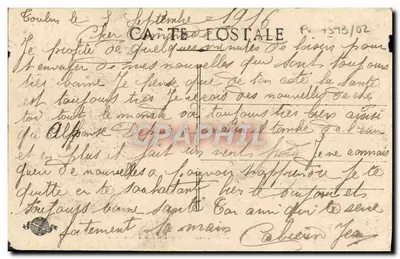 Toulon le 8 Septembre 1916
Cher
CARTE POSTALE
P. 1593/02
Je profite de quelques minutes de loisirs pour
t'envoyer de mes nouvelles qui sont toujours
très bonne Je pense que de ton coté la santé
est toujours très Je reçois des nouvelles de chez
toi tout le monde va toujours très bien ainsi
qu Alphonse tombe
et en plus il fait un vent Je ne connais
de nouvelles a pouvoir t'apprendre Je te
quitte en te souhaitant bien le bonjour et
toujours bonne santé Ton ami qui te serre
fortement la main Jean